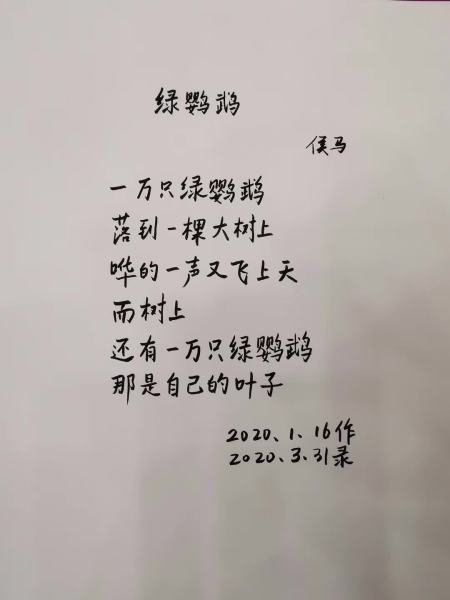 绿鹦鹉
侯马
一万只绿鹦鹉
落到一棵大树上
哗的一声又飞上天
而树上
还有一万只绿鹦鹉
那是自己的叶子
2020、1、16作
2020、3、31录